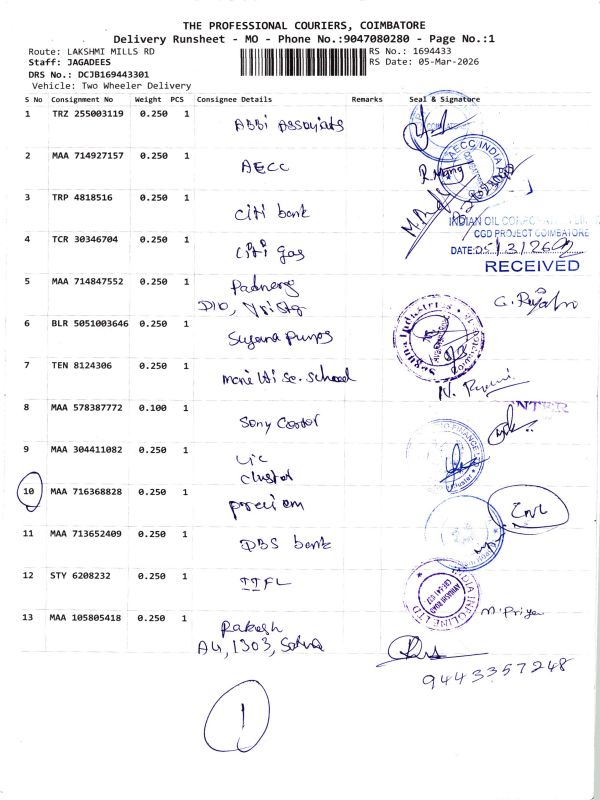 THE PROFESSIONAL COURIERS, COIMBATORE
Delivery Runsheet - MO - Phone No.:9047080280 - Page No.:1
Route: LAKSHMI MILLS RD
RS No.: 1694433
Staff: JAGADEES
RS Date: 05-Mar-2026
DRS No.: DCJB169443301
Vehicle: Two Wheeler Delivery
S No Consignment No Weight PCS Consignee Details Remarks Seal & Signature
1 TRZ 255003119 0.250 1 ABBi Associates
2 MAA 714927157 0.250 1 AECC
AECC INDIA
3 TRP 4818516 0.250 1 Citi bank
INDIAN OIL
4 TCR 30346704 0.250 1 Citi gas
CGD PROJECT COIMBATORE
DATE:
RECEIVED
5 MAA 714847552 0.250 1
6 BLR 5051003646 0.250 1 Suguna Pumps
Suguna Industries
7 TEN 8124306 0.250 1
8 MAA 578387772 0.100 1 Sony
9 MAA 304411082 0.250 1 Lic
cluster
10 MAA 716368828 0.250 1
11 MAA 713652409 0.250 1 DBS bank
12 STY 6208232 0.250 1 IIFL
INDIA INFOLINE LTD
AVINASHI ROAD
M. Priya
13 MAA 105805418 0.250 1 Rakesh
A4, 1303,
9443357248
1